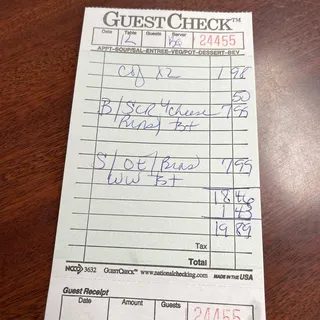 GUESTCHECK™
Date Table Guests Server
12 24455
APPT-SOUP/SAL-ENTREE-VEG/POT-DESSERT-BEV
1 98
50
B/SCR cheese 7 95
S/OE/
WW 7 99
18 46
1 43
19 89
Tax
Total
3632 GUESTCHECK™ www.nationalchecking.com MADE IN THE USA
Guest Receipt
Date Amount Guests
24455